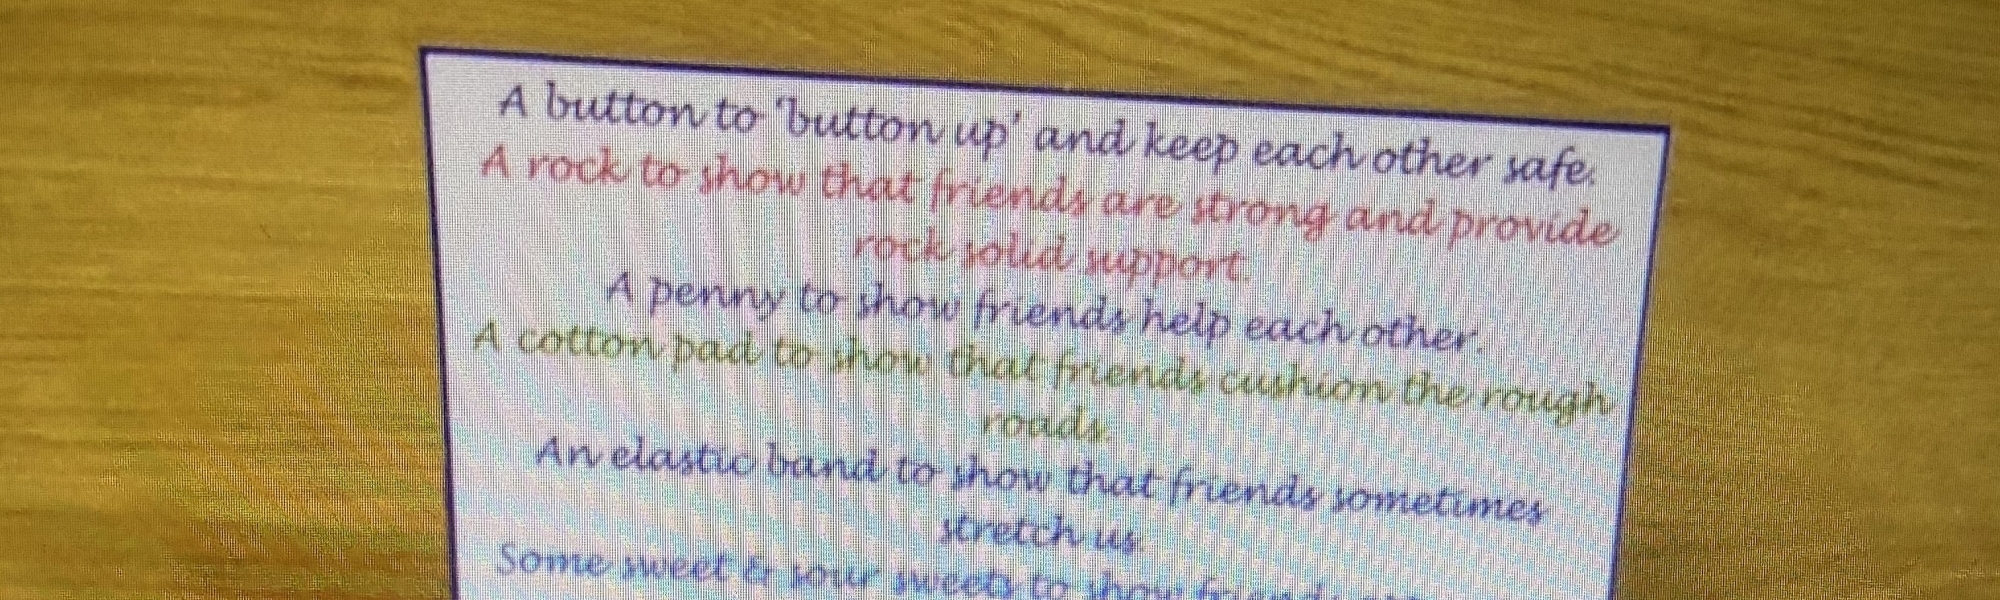 A button to 'button up' and keep each other safe.
A rock to show that friends are strong and provide
rock solid support.
A penny to show friends help each other.
A cotton pad to show that friends cushion the rough
roads.
An elastic band to show that friends sometimes
stretch us.
Some sweet & sour sweets to show friends